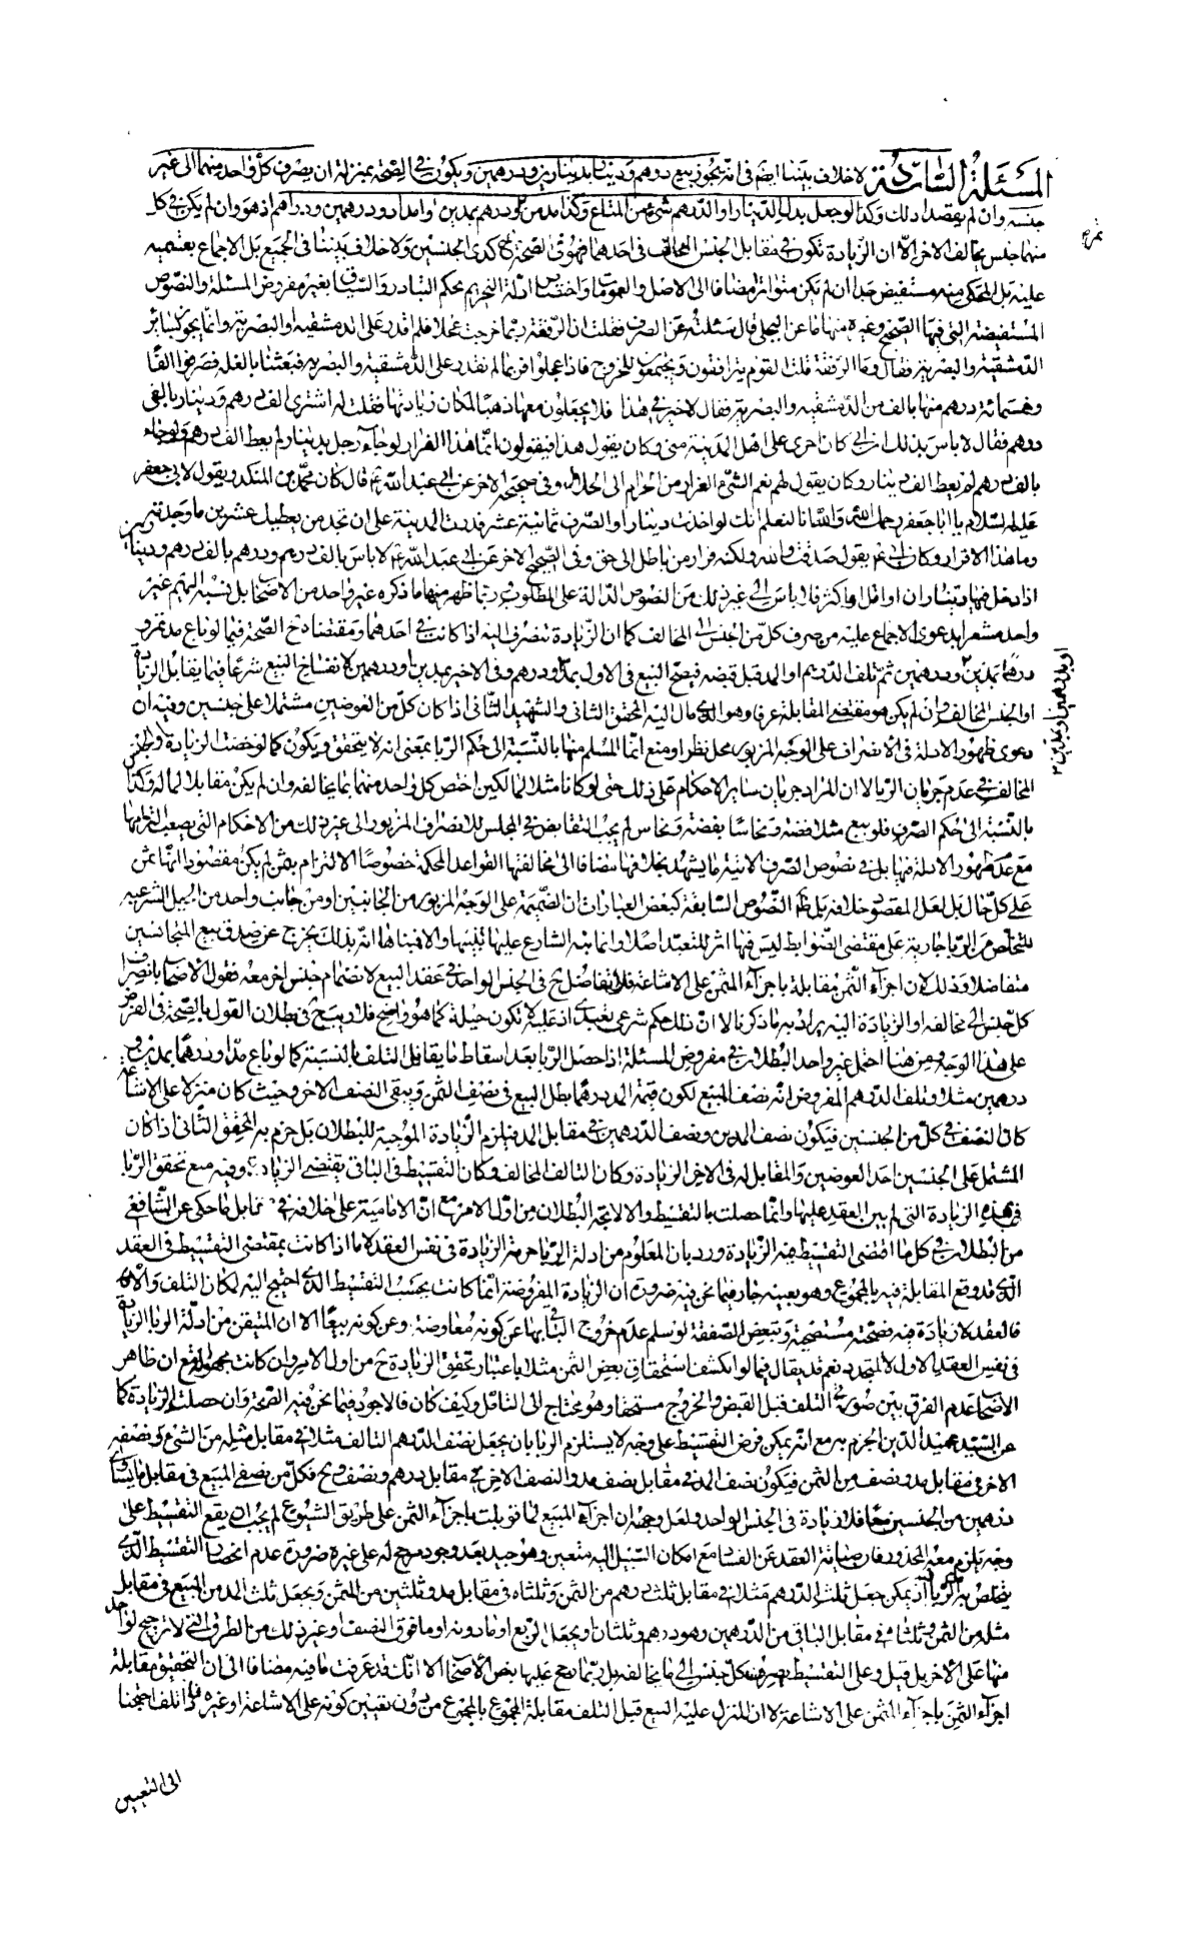 المسئلة السادسة لا خلاف بيننا ايضا في انه يجوز بيع درهم ودينار بدينارين ودرهمين ويكون في الصحة بمنزلة ان يصرف كل واحد منهما الى غير
جنسه وان لم يقصدا ذلك وكذا لو جعل بدل الدينار او الدرهم شيء من المتاع وكذا مد من تمر ودرهم بمدين او امداد ودرهمين ودراهم اذ هو وان لم يكن في كل
منهما جنس يخالف الاخر الا ان الزيادة تكون في مقابل الجنس المخالف في احدهما فهو في الصحة ح كذى الجنسين ولا خلاف بيننا في الجميع بل الاجماع بقسميه
عليه بل المحكي منه مستفيض جدا ان لم يكن متواترا مضافا الى الاصل والعمومات واختصاص ادلة التحريم بحكم التبادر والسياق بغير مفروض المسئلة والنصوص
المستفيضة التي فيها الصحيح وغيره منها ما عن البجلي قال سئلته عن الصرف فقلت ان الرفقة ربما خرجت عجلا فلم نقدر على الدمشقية والبصرية وانما يجوز بسابر
الدمشقية والبصرية فقال وما الرفقة قلت القوم يترافقون ويجتمعون للخروج فاذا عجلوا فربما لم نقدر على الدمشقية والبصرية فبعثنا بالغلة فصرفوا الفا
وخمسمائة درهم منها بالف من الدمشقية والبصرية فقال لا خير في هذا فلا يجعلون معها ذهبا لمكان زيادتها فقلت له اشترى الف درهم ودينار بالفي
درهم فقال لا باس بذلك ان ابي كان اجرى على اهل المدينة منى وكان يقول هذا فيقولون انما هذا الفرار لو جاء رجل بدينار لم يعط الف درهم ولو جاء
بالف درهم لم يعط الف دينار وكان يقول لهم نعم الشيء الفرار من الحرام الى الحلال وفي صحيحه الاخر عن ابي عبد الله ع قال كان محمد بن المنكدر يقول لابي جعفر
عليه السلام يا ابا جعفر رحمك الله والله انا لنعلم انك لو اخذت دينارا والصرف ثمانية عشر فدرت المدينة على ان تجد من يعطيك عشرين ما وجدته
وما هذا الا فرار وكان ابي ع يقول صدقت والله ولكنه فرار من باطل الى حق وفي الصحيح الاخر عن ابي عبد الله ع لا باس بالف درهم ودرهم بالف درهم ودينارين
اذا دخل فيها ديناران او اقل او اكثر فلا باس الى غير ذلك من النصوص الدالة على المطلوب وربما ظهر منها ما ذكره غير واحد من الاصحاب بل نسبه اليهم غير
واحد مشعرا بدعوى الاجماع عليه من صرف كل من الجنس الى المخالف كما ان الزيادة تنصرف اليه اذا كانت في احدهما ومقتضاه ح الصحة فيما لو باع مد تمر و
درهما بمدين ودرهمين ثم تلف الدرهم او المد قبل قبضه فيصح البيع في الاول بمد ودرهم وفي الاخير بمدين او درهمين لانفساخ البيع شرعا فيما يقابل الزيادة
او الجنس المخالف وان لم يكن هو مقتضى المقابلة عرفا وهو الذي مال اليه المحقق الثاني والشهيد الثاني اذا كان كل من العوضين مشتملا على جنسين وفيه ان
دعوى ظهور الادلة في الانصراف على الوجه المزبور محل نظر او منع انما المسلم منها بالنسبة الى حكم الربا بمعنى انه لا يتحقق ويكون كما لو خصت الزيادة والجنس
المخالف في عدم جريان الربا لا ان المراد جريان ساير الاحكام على ذلك حتى لو كانا مثلا لمالكين اختص كل واحد منهما بما يخالفه وان لم يكن مقابلا لماله وكذا
بالنسبة الى حكم الصرف فلو بيع مثلا فضة ونحاسا بفضة ونحاس لم يجب التقابض في المجلس للانصراف المزبور الى غير ذلك من الاحكام التي يصعب التزامها
مع عدم ظهور الادلة فيها بل في نصوص الصرف الاتية ما يشهد بخلافها مضافا الى مخالفتها القواعد المحكمة خصوصا الالتزام بثمن لم يكن مقصودا انها ثمن
على كل حال بل لعل المقصود خلافه بل ظاهر النصوص السابقة كبعض العبارات ان الضميمة على الوجه المزبور من الجانبين او من جانب واحد من الحيل الشرعيه
للتخلص من الربا جارية على مقتضى الضوابط ليس فيها اثر للتعبد اصلا وانما نبه الشارع عليها تنبيها والا فبناها انه بذلك يخرج عن صدق بيع المتجانسين
متفاضلا وذلك لان اجزاء الثمن مقابلة باجزاء المثمن على الاشاعة فلا تفاضل ح في الجنس الواحد في عقد البيع لانضمام جنس اخر معه فقول الاصحاب بانصراف
كل جنس الى مخالفه او الزيادة اليه يراد به ما ذكرنا لا ان ذلك حكم شرعي تعبدي اذ عليه لا تكون حيلة كما هو واضح فلا ريب ح في بطلان القول بالصحة في الفرض
على هذا الوجه ومن هنا احتمل غير واحد البطلان في مفروض المسئلة اذا حصل الربا بعد اسقاط ما يقابل التلف بالنسبة كما لو باع مدا ودرهما بمدين و
درهمين مثلا وتلف الدرهم المفروض انه نصف المبيع لكون قيمة المد درهما بطل البيع في نصف الثمن ويبقى النصف الاخر وحيث كان منزلا على الاشاعة
كان النصف في كل من الجنسين فيكون نصف المدين ونصف الدرهمين في مقابل المد فيلزم الزيادة الموجبة للبطلان بل جزم به المحقق الثاني اذا كان
المشتمل على الجنسين احد العوضين والمقابل له في الاخر الزيادة وكان التالف المخالف وكان التقسيط في الباقي يقتضي الزيادة وفيه منع تحقق الربا
في هذه الزيادة التي لم يبن العقد عليها وانما حصلت بالتقسيط والا لاتجه البطلان من اول الامر مع ان الامامية على خلافه في مقابل ما حكي عن الشافعي
من البطلان في كل ما اقتضى التقسيط فيه الزيادة ورد بان المعلوم من ادلة الربا حرمة الزيادة في نفس العقد لا ما اذا كانت بمقتضى التقسيط في العقد
الذي قد وقع المقابلة فيه بالمجموع وهو بعينه جار فيما نحن فيه ضرورة ان الزيادة المفروضة انما كانت بحسب التقسيط الذي احتيج اليه لمكان التلف والا
فالعقد لا زيادة فيه فصحته مستصحبة وتبعض الصفقة لو سلم عدم خروج الباقي بها عن كونه معاوضة وعن كونه بيعا الا ان المتيقن من ادلة الربا الزيادة
في نفس العقد الاول لا المتجدد نعم قد يقال فيما لو انكشف استحقاق بعض الثمن مثلا باعتبار تحقق الزيادة ح من اول الامر وان كانت مجهولة مع ان ظاهر
الاصحاب عدم الفرق بين صورتي التلف قبل القبض والخروج مستحقا وهو محتاج الى التامل وكيف كان فالاجود فيما نحن فيه الصحة وان حصلت الزيادة كما
عن السيد عميد الدين الجزم به مع انه يمكن فرض التقسيط على وجه لا يستلزم الربا بان يجعل نصف الدرهم التالف مثلا في مقابل مثله من الشيء ونصفه
الاخر في مقابل مد ونصف من الثمن فيكون نصف المد في مقابل نصف مد والنصف الاخر في مقابل درهم ونصف وح فكل من نصفي المبيع في مقابل ما يساوي
درهمين من الجنسين معا فلا زيادة في الجنس الواحد ولعل وجهه ان اجزاء المبيع لما قوبلت باجزاء الثمن على طريق الشيوع لم يجب ان يقع التقسيط على
وجه يلزم معه المحذور فان صيانة العقد عن الفساد مع امكان السبيل اليه متعين وهو جيد بعد وجود مرجح له على غيره ضرورة عدم انحصار التقسيط الذي
يخلص به من الربا اذ يمكن جعل ثلث الدرهم مثلا في مقابل ثلث درهم من الثمن وثلثاه في مقابل مد وثلثين من المثمن ويجعل ثلث المد من المبيع في مقابل
مثله من الثمن وثلثا في مقابل الباقي من الدرهمين وهو درهم وثلثان ويجعل الربع او ما دونه او ما فوق النصف او غير ذلك من الطرق التي لا ترجيح لواحد
منها على الاخر بل قيل وعلى التقسيط بصرف كل جنس الى ما يخالفه بل ربما رجح عليها بنص الاصحاب الا انك قد عرفت ما فيه مضافا الى ان التحقيق مقابلة
اجزاء الثمن باجزاء المثمن على الاشاعة لا ان المنزل عليه البيع قبل التلف مقابلة المجموع بالمجموع من دون تعيين كونه على الاشاعة او غيره فاذا تلف احتجنا
الى التعيين
او بدرهمين او بمدين